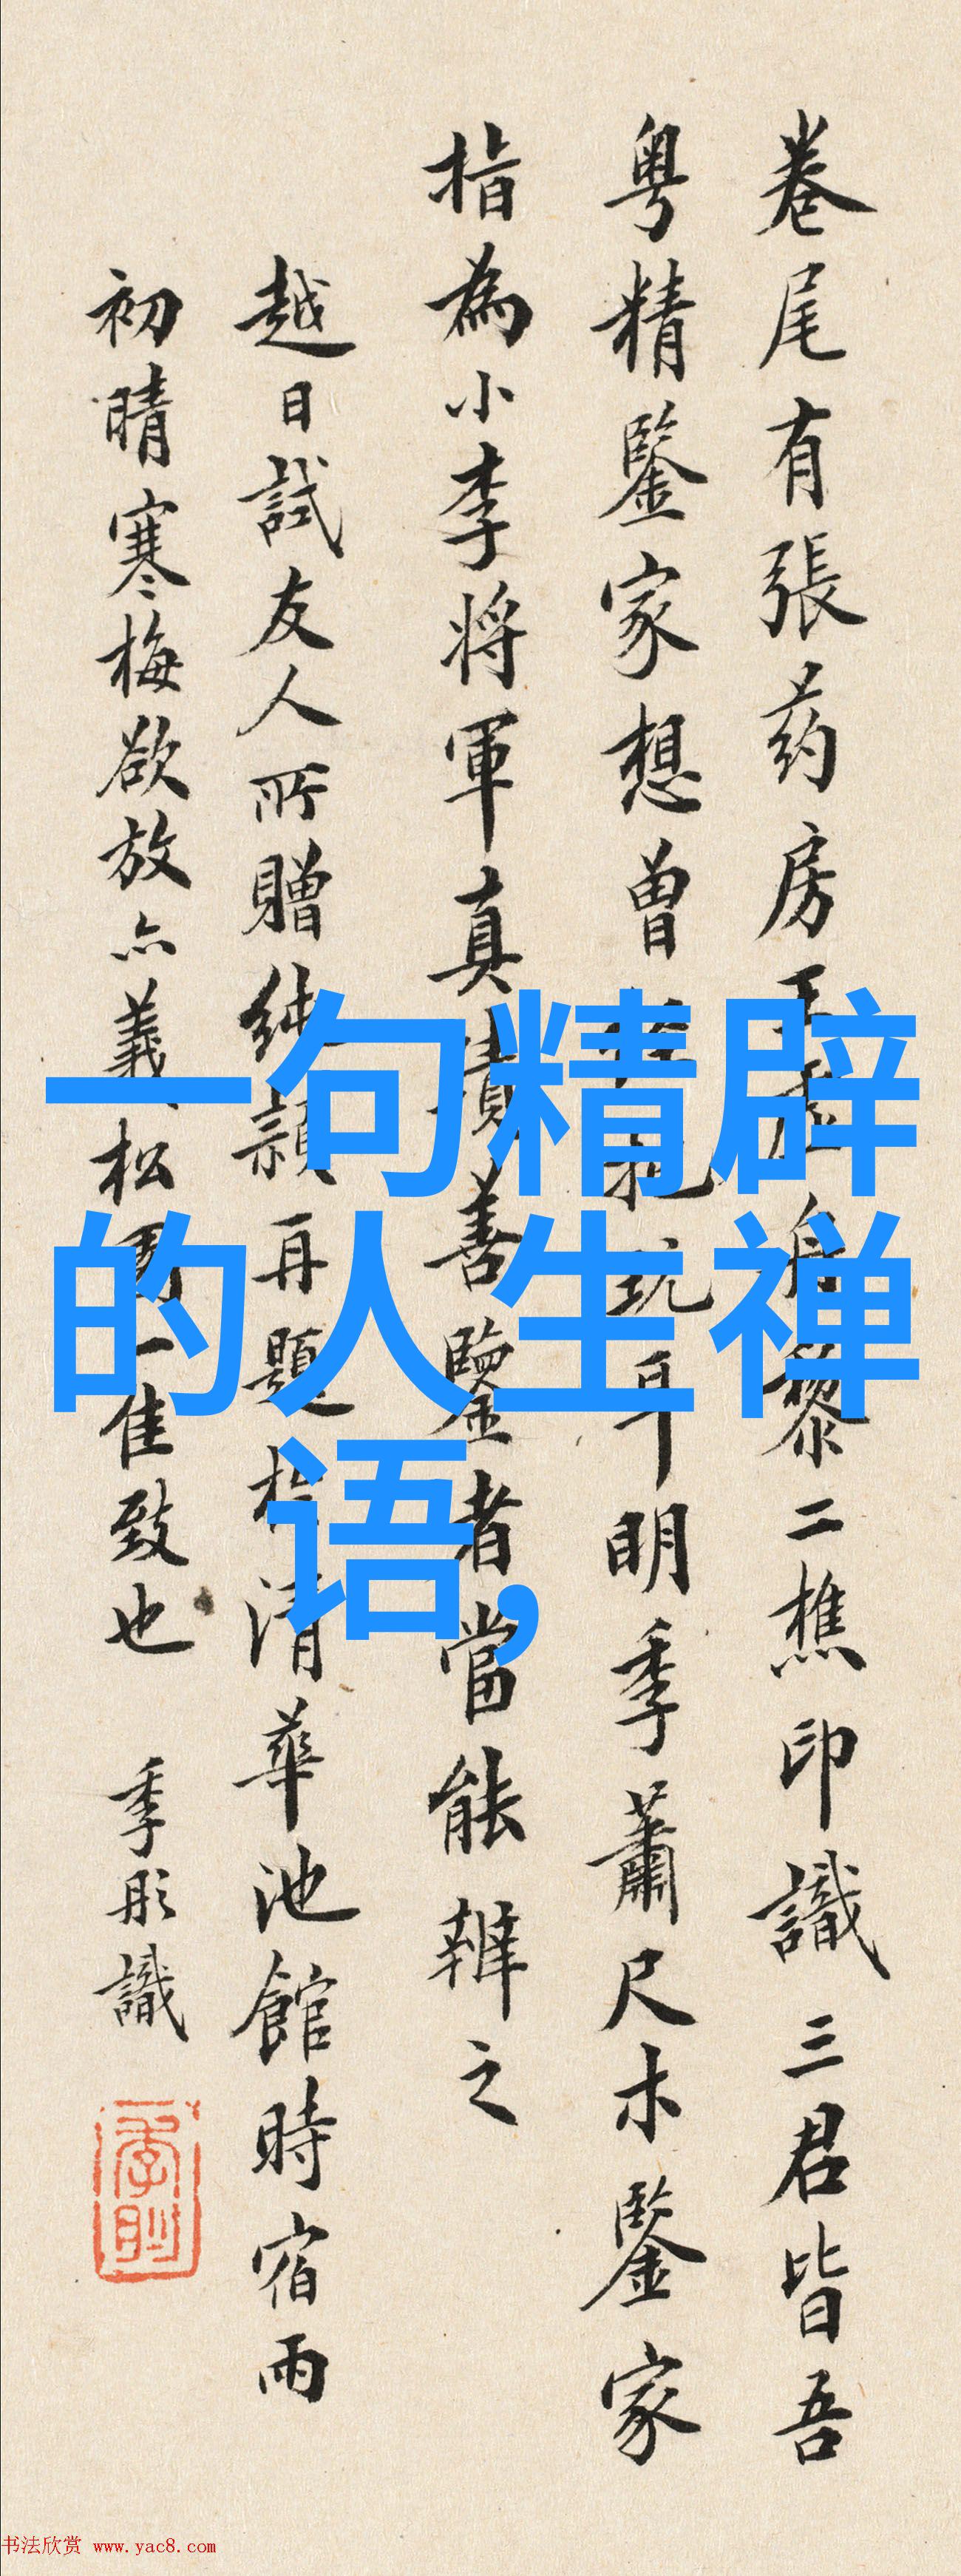 卷尾有張药房王
黎二樵印識三君皆吾
粤精鑒家想曾
玩耳明季蕭尺木鑒家
指為小李将軍真蹟善鑒者當能辨之
越日試友人所贈純
穎再題於清華池館時宿雨
初晴寒梅欲放亦
松
一佳致也 季彤識
一句精辟
的人生禅
语,
书法欣赏 www.yac8.com